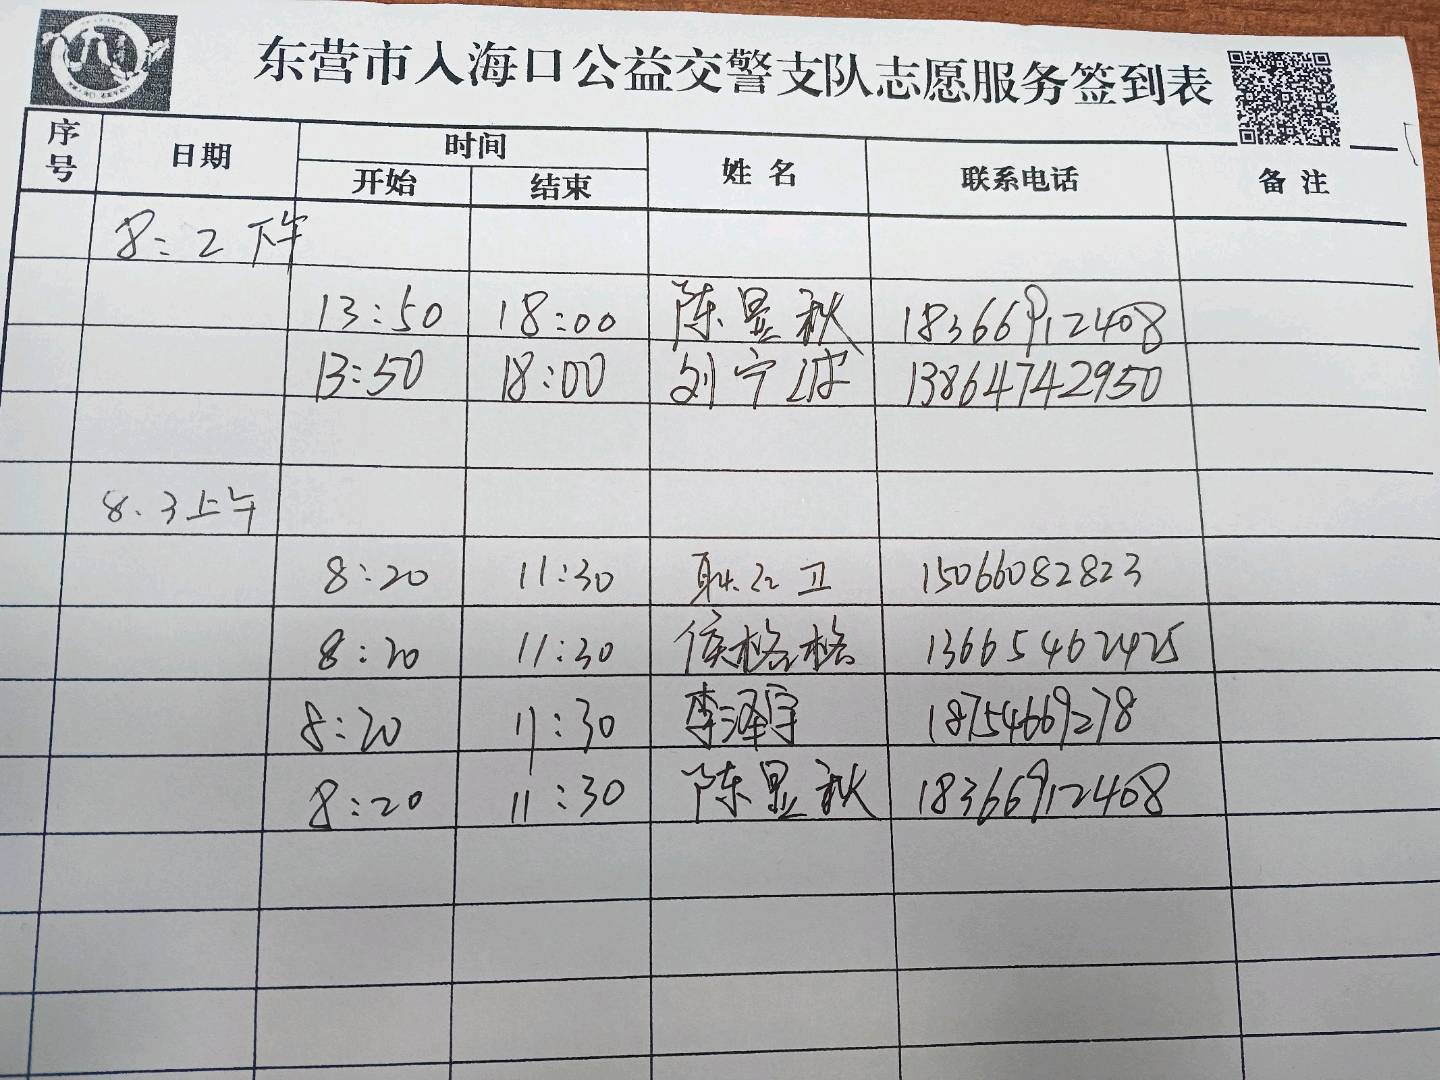 东营市入海口公益交警支队志愿服务签到表
序号 日期 时间 姓名 联系电话 备注
开始 结束
8:2 下午
13:50 18:00 陈显秋 18366912408
13:50 18:00 刘宁波 13864742950
8.3上午
8:20 11:30 耿红卫 15066082823
8:20 11:30 侯格格 13665462425
8:20 11:30 李泽宇 18754669278
8:20 11:30 陈显秋 18366912408